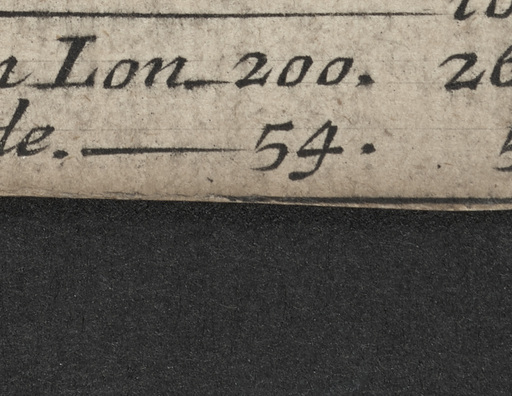 n Lon_200. 26
de. — 54. 5